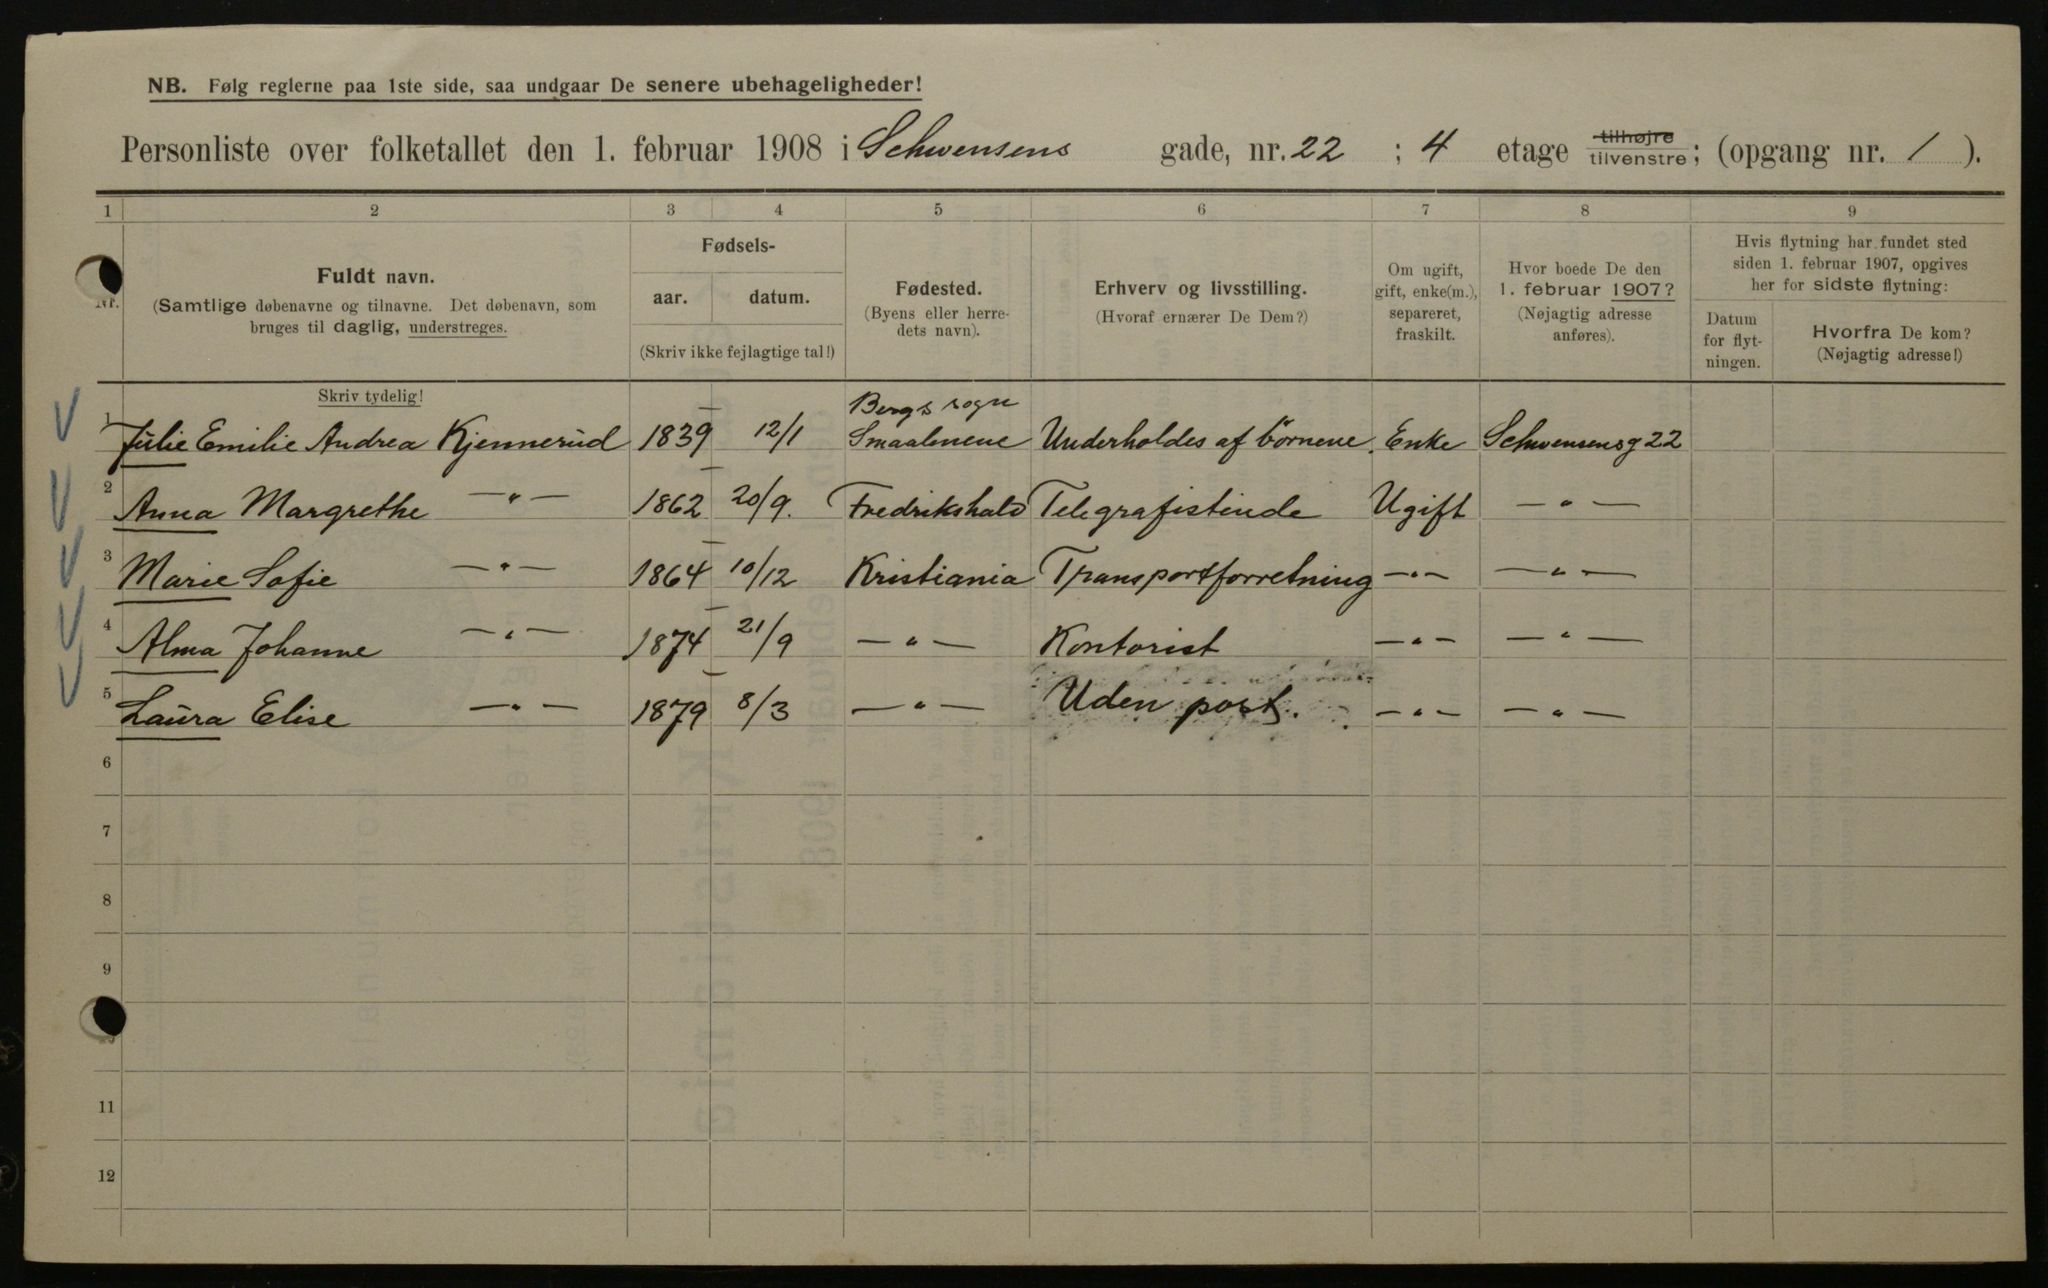 NB. Følg reglerne paa 1ste side, saa undgaar De senere ubehageligheder!
Personliste over folketallet den 1. februar 1908 i Schwensens gade, nr. 22 ; 4 etage tilhøjre tilvenstre ; (opgang nr. 1 ).
1 2 3 4 5 6 7 8 9
Nr.
Fuldt navn.
(Samtlige døbenavne og tilnavne. Det døbenavn, som
bruges til daglig, understreges.
Skriv tydelig!
Fødsels-
aar. datum.
(Skriv ikke fejlagtige tal!)
Fødested.
(Byens eller herre-
dets navn).
Erhverv og livsstilling.
(Hvoraf ernærer De Dem?)
Om ugift,
gift, enke(m.),
separeret,
fraskilt.
Hvor boede De den
1. februar 1907?
(Nøjagtig adresse
anføres).
Hvis flytning har fundet sted
siden 1. februar 1907, opgives
her for sidste flytning:
Datum
for flyt-
ningen.
Hvorfra De kom?
(Nøjagtig adresse!)
Bergs sogn
1 Julie Emilie Andrea Kjennerud 1839 12/1 Smaalenene Underholdes af börnene. Enke Schwensensg 22
2 Anna Margrethe —"— 1862 20/9. Fredrikshald Telegrafistinde Ugift —"—
3 Marie Sofie —"— 1864 10/12 Kristiania Transportforretning —"— —"—
4 Alma Johanne —"— 1874 21/9 —"— Kontorist —"— —"—
5 Laura Elise —"— 1879 8/3 —"— Uden post. —"— —"—
6
7
8
9
11
12